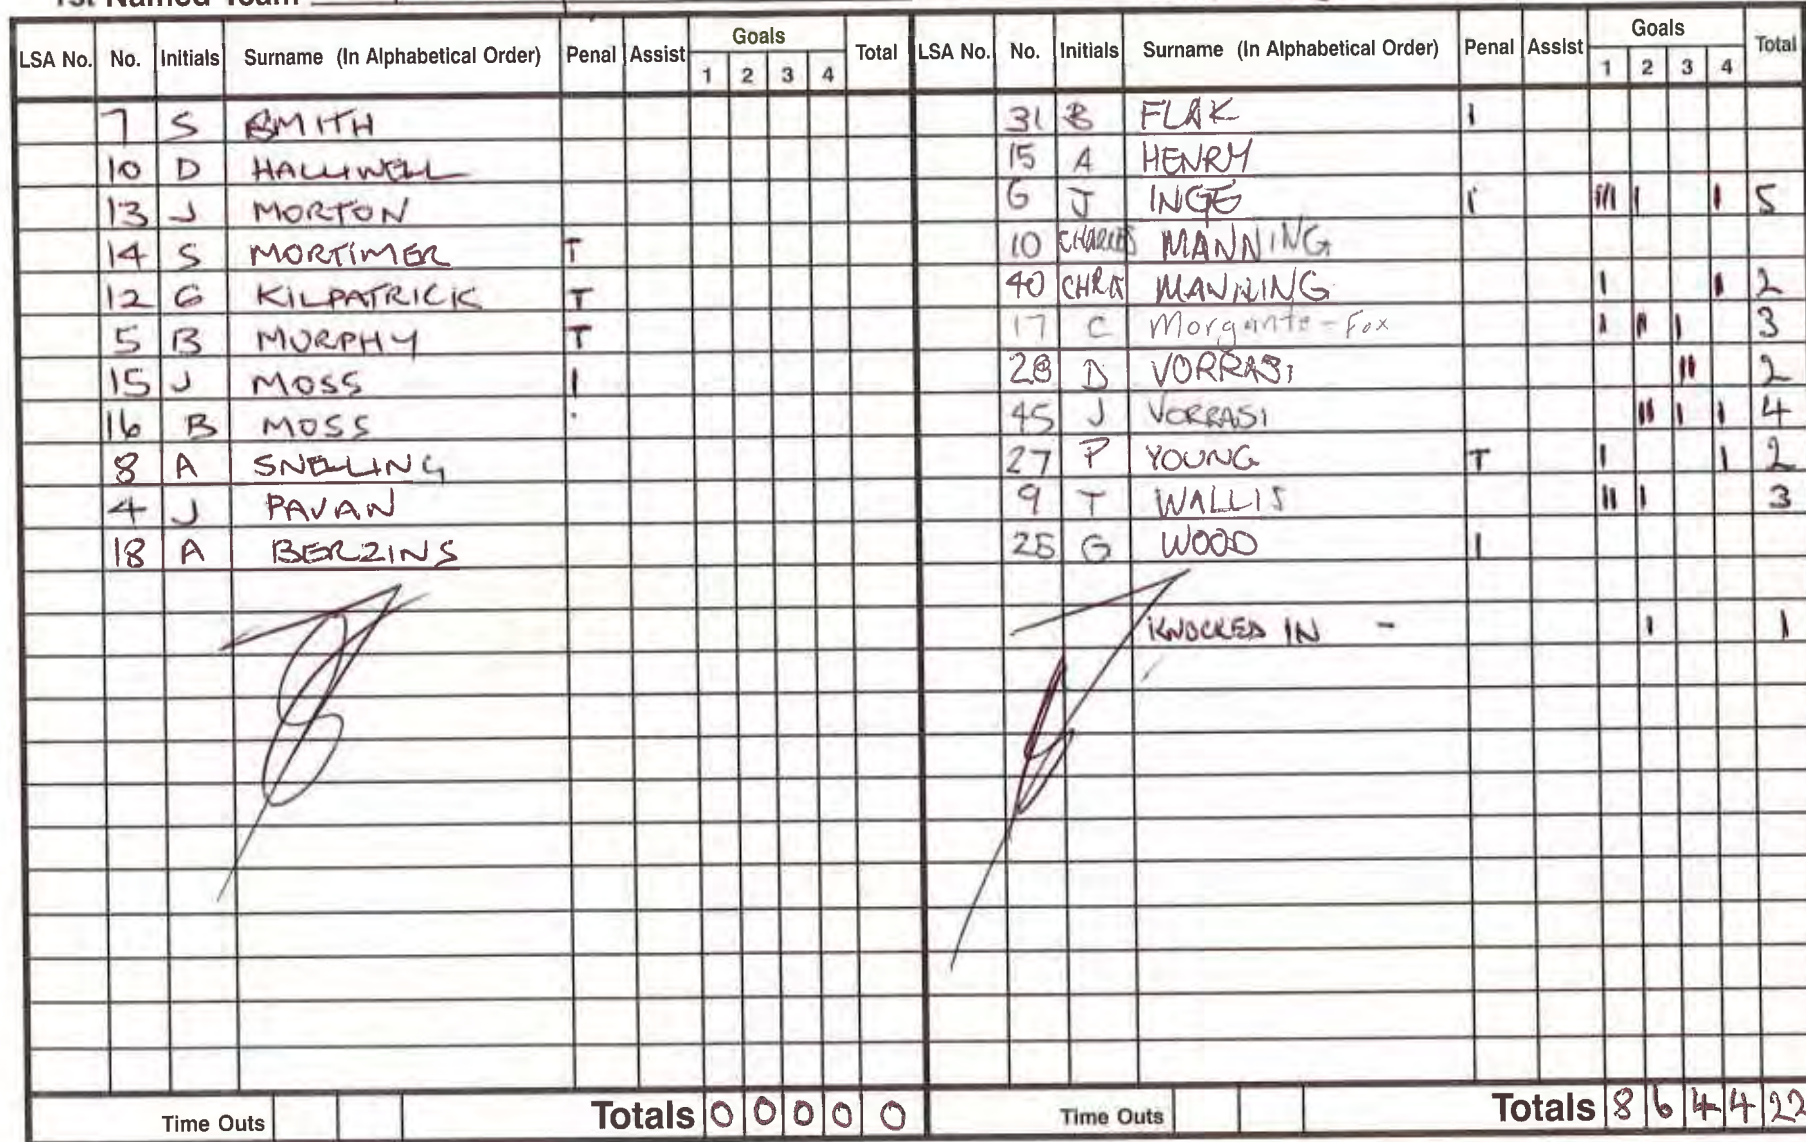 1st Named Team
LSA No. No. Initials Surname (In Alphabetical Order) Penal Assist Goals 1 2 3 4 Total
7 S SMITH
10 D HALLIWELL
13 J MORTON
14 S MORTIMER T
12 G KILPATRICK T
5 B MURPHY T
15 J MOSS I
16 B MOSS
8 A SNELLING
4 J PAVAN
18 A BERZINS
Time Outs Totals 0 0 0 0 0
LSA No. No. Initials Surname (In Alphabetical Order) Penal Assist Goals 1 2 3 4 Total
31 B FLAK I
15 A HENRY
6 J INGE I III I I 5
10 CHARLES MANNING
40 CHRIS MANNING I I 2
17 C Morgante-Fox I I I 3
28 D VORRASI II 2
45 J VORRASI II I I 4
27 P YOUNG T I I 2
9 T WALLIS II I 3
25 G WOOD I
KNOCKED IN - I 1
Time Outs Totals 8 6 4 4 22